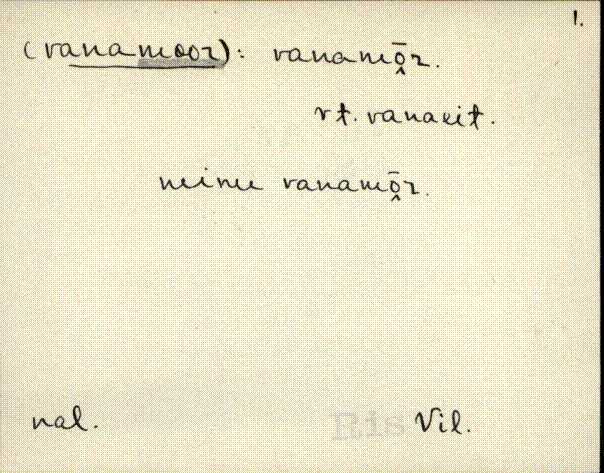 1.
(vanamoor): vanamō̭r.
vt. vanaeit.
meinu vanamō̭r.
nal.
Ris
Vil.